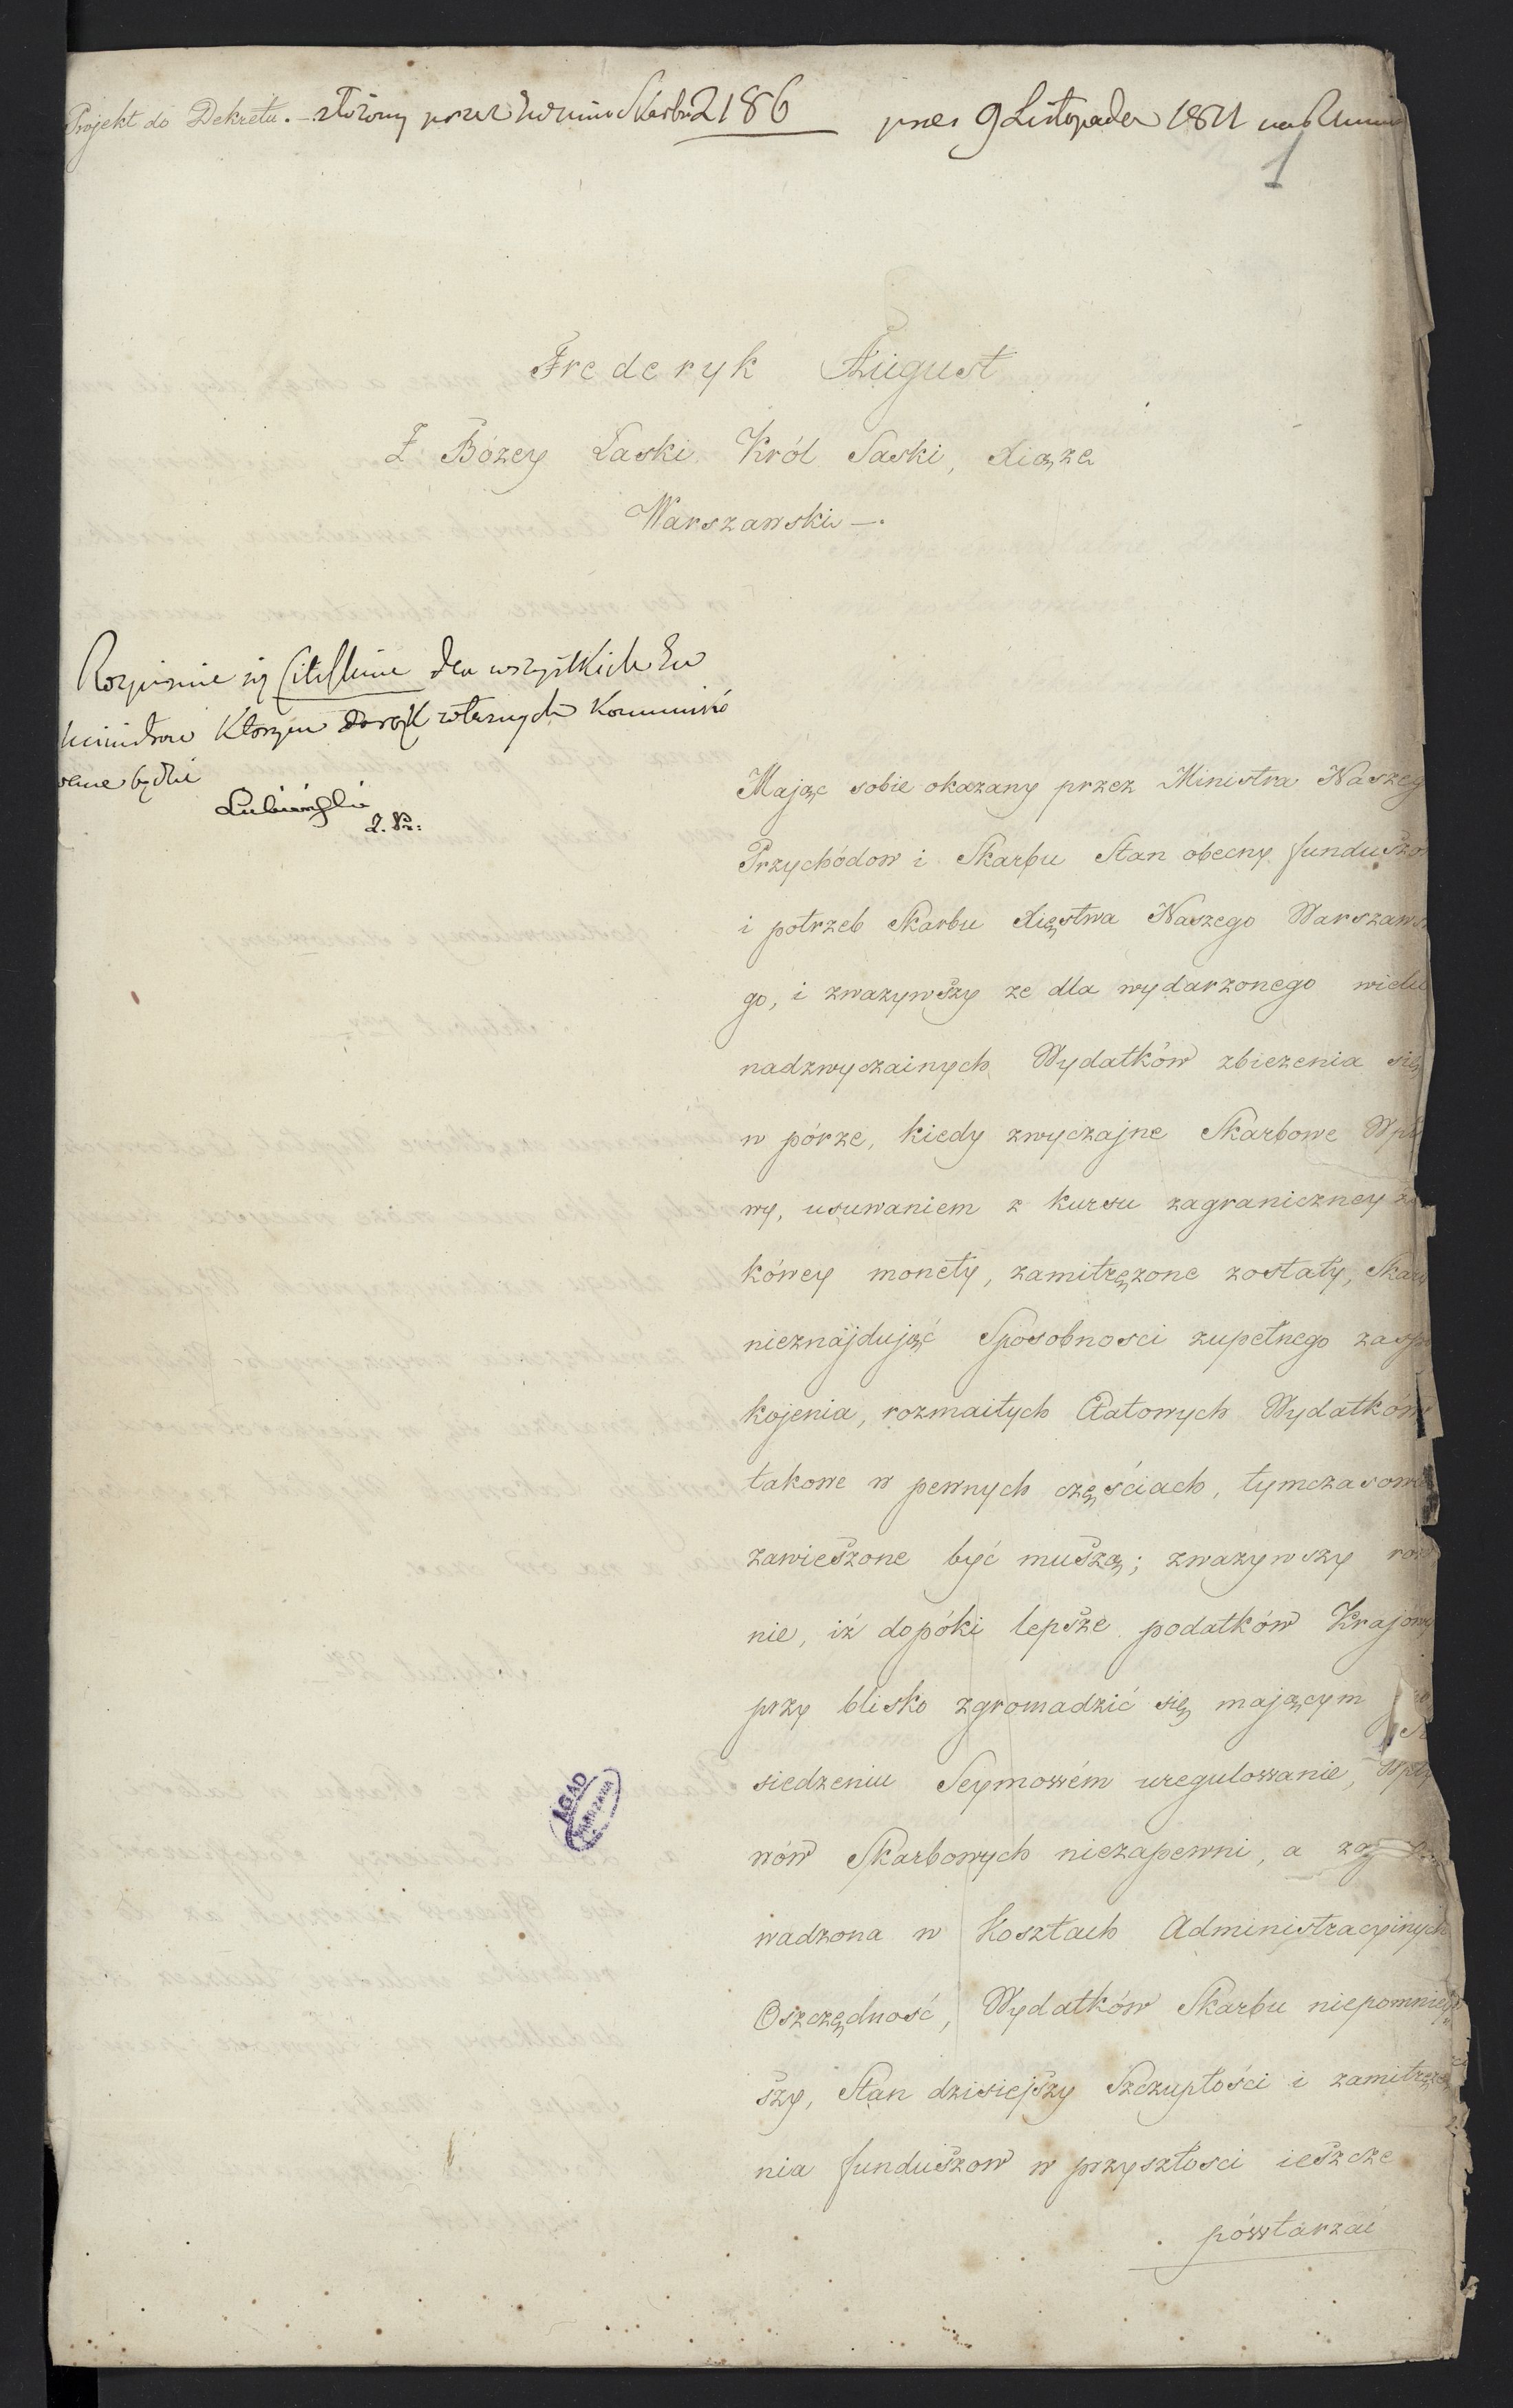 Projekt do Dekretu. złożony przez 2186 9 Listopada 1811
1
Frederyk August
Z Bózey Łaski Król Saski, Xiąze
Warszawski.
Rozpisanie się dla wszystkich
Ministrow Ktorym
będzie
Lubieński
Mając sobie okazany przez Ministra Naszeg
Przychódow i Skarbu Stan óbecny funduszo
i potrzeb Skarbu Xięstwa Naszego Warszaws
go, i zwazywszy ze dla wydarzonego wielu
nadzwyczainych Wydatków zbiezenia się
w pórze, kiedy zwyczajne Skarbowe Wpł
wy, usuwaniem z kursu zagraniczney
kówey monety, zamitrężone zostały, Skarb
nieznajdując Sposobnosci zupełnego zaspo
kojenia, rozmaitych Etatowych Wydatków
takowe w pewnych częściach, tymczasowie
zawieszone być muszą; zwazywszy rów
nie, iż dopóki lepsze podatków Krajowy
przy blisko zgromadzić się mającym
siedzeniu Seymowém uregulowanie, Wpły
wów Skarbowych niezapewni, a
wadzona w Kosztach Administracyinych
Oszczędność, Wydatków Skarbu niepomniey
szy, Stan dzisiejszy Szczupłości i zamitręże
nia funduszow w przyszłosci ieszcze
pówtarzać
AGAD
WARSZAWA